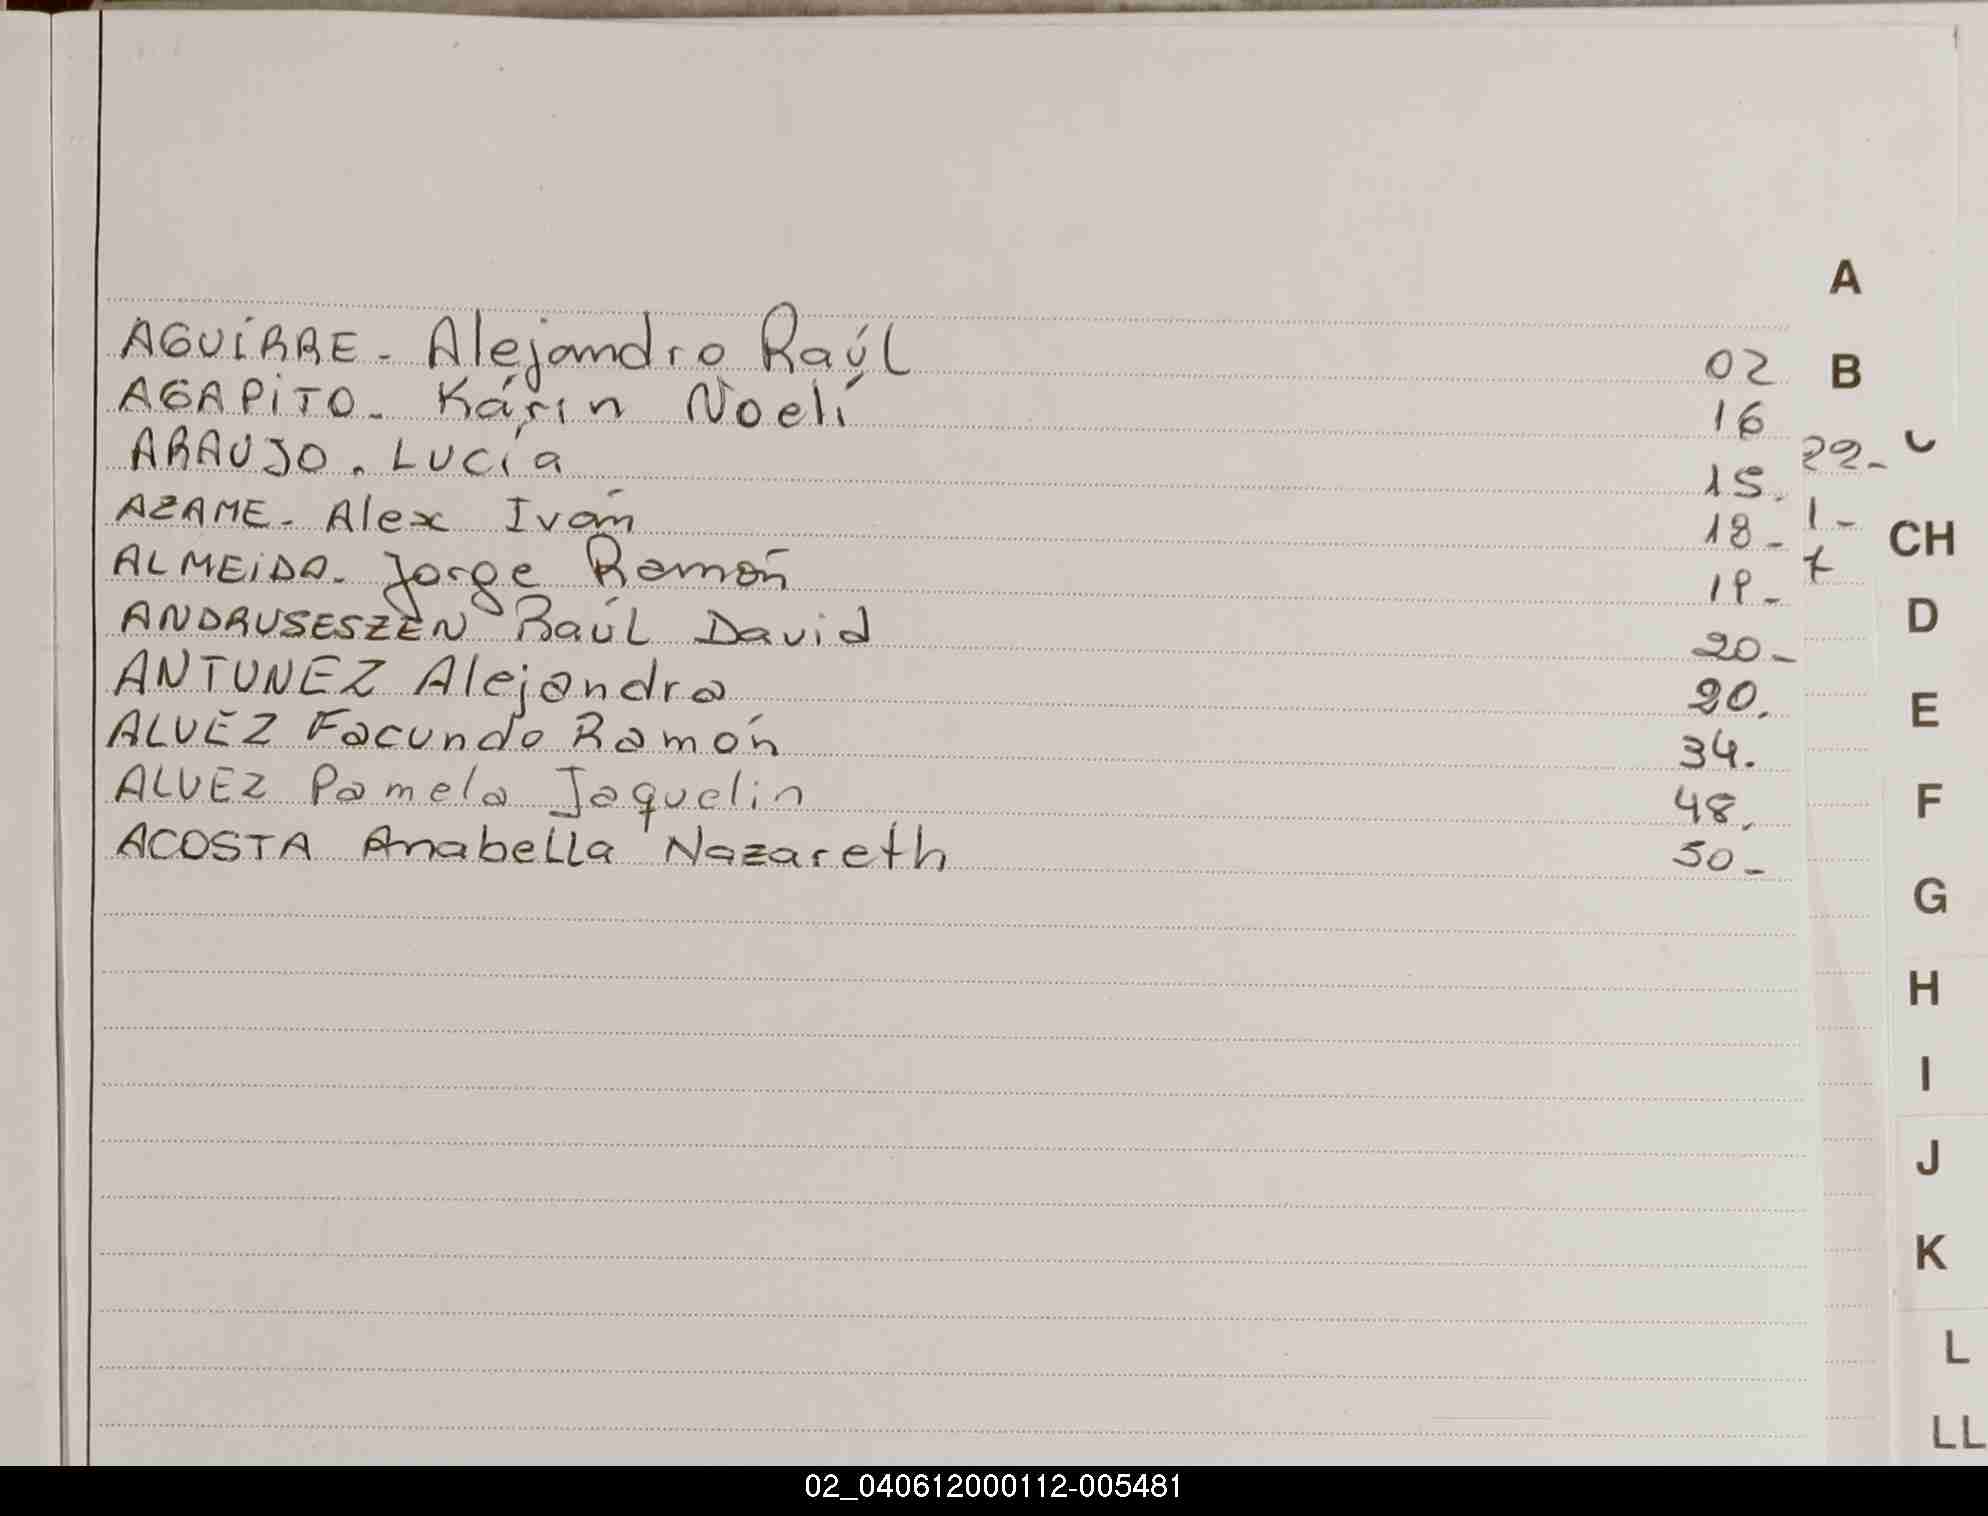 AGUIRRE - Alejandro Raúl 02
AGAPITO - Kárin Noelí 16
ARAUJO. Lucía 15.
AZAME - Alex Iván 18 -
ALMEIDA - Jorge Ramón 19 -
ANDRUSESZEN Raúl David 20 -
ANTUNEZ Alejandra 20.
ALVEZ Facundo Ramón 34.
ALVEZ Pamela Jaquelin 48.
ACOSTA Anabella Nazareth 50 -
A
B
22 -
1 -
7
CH
D
E
F
G
H
I
J
K
L
LL
02_040612000112-005481